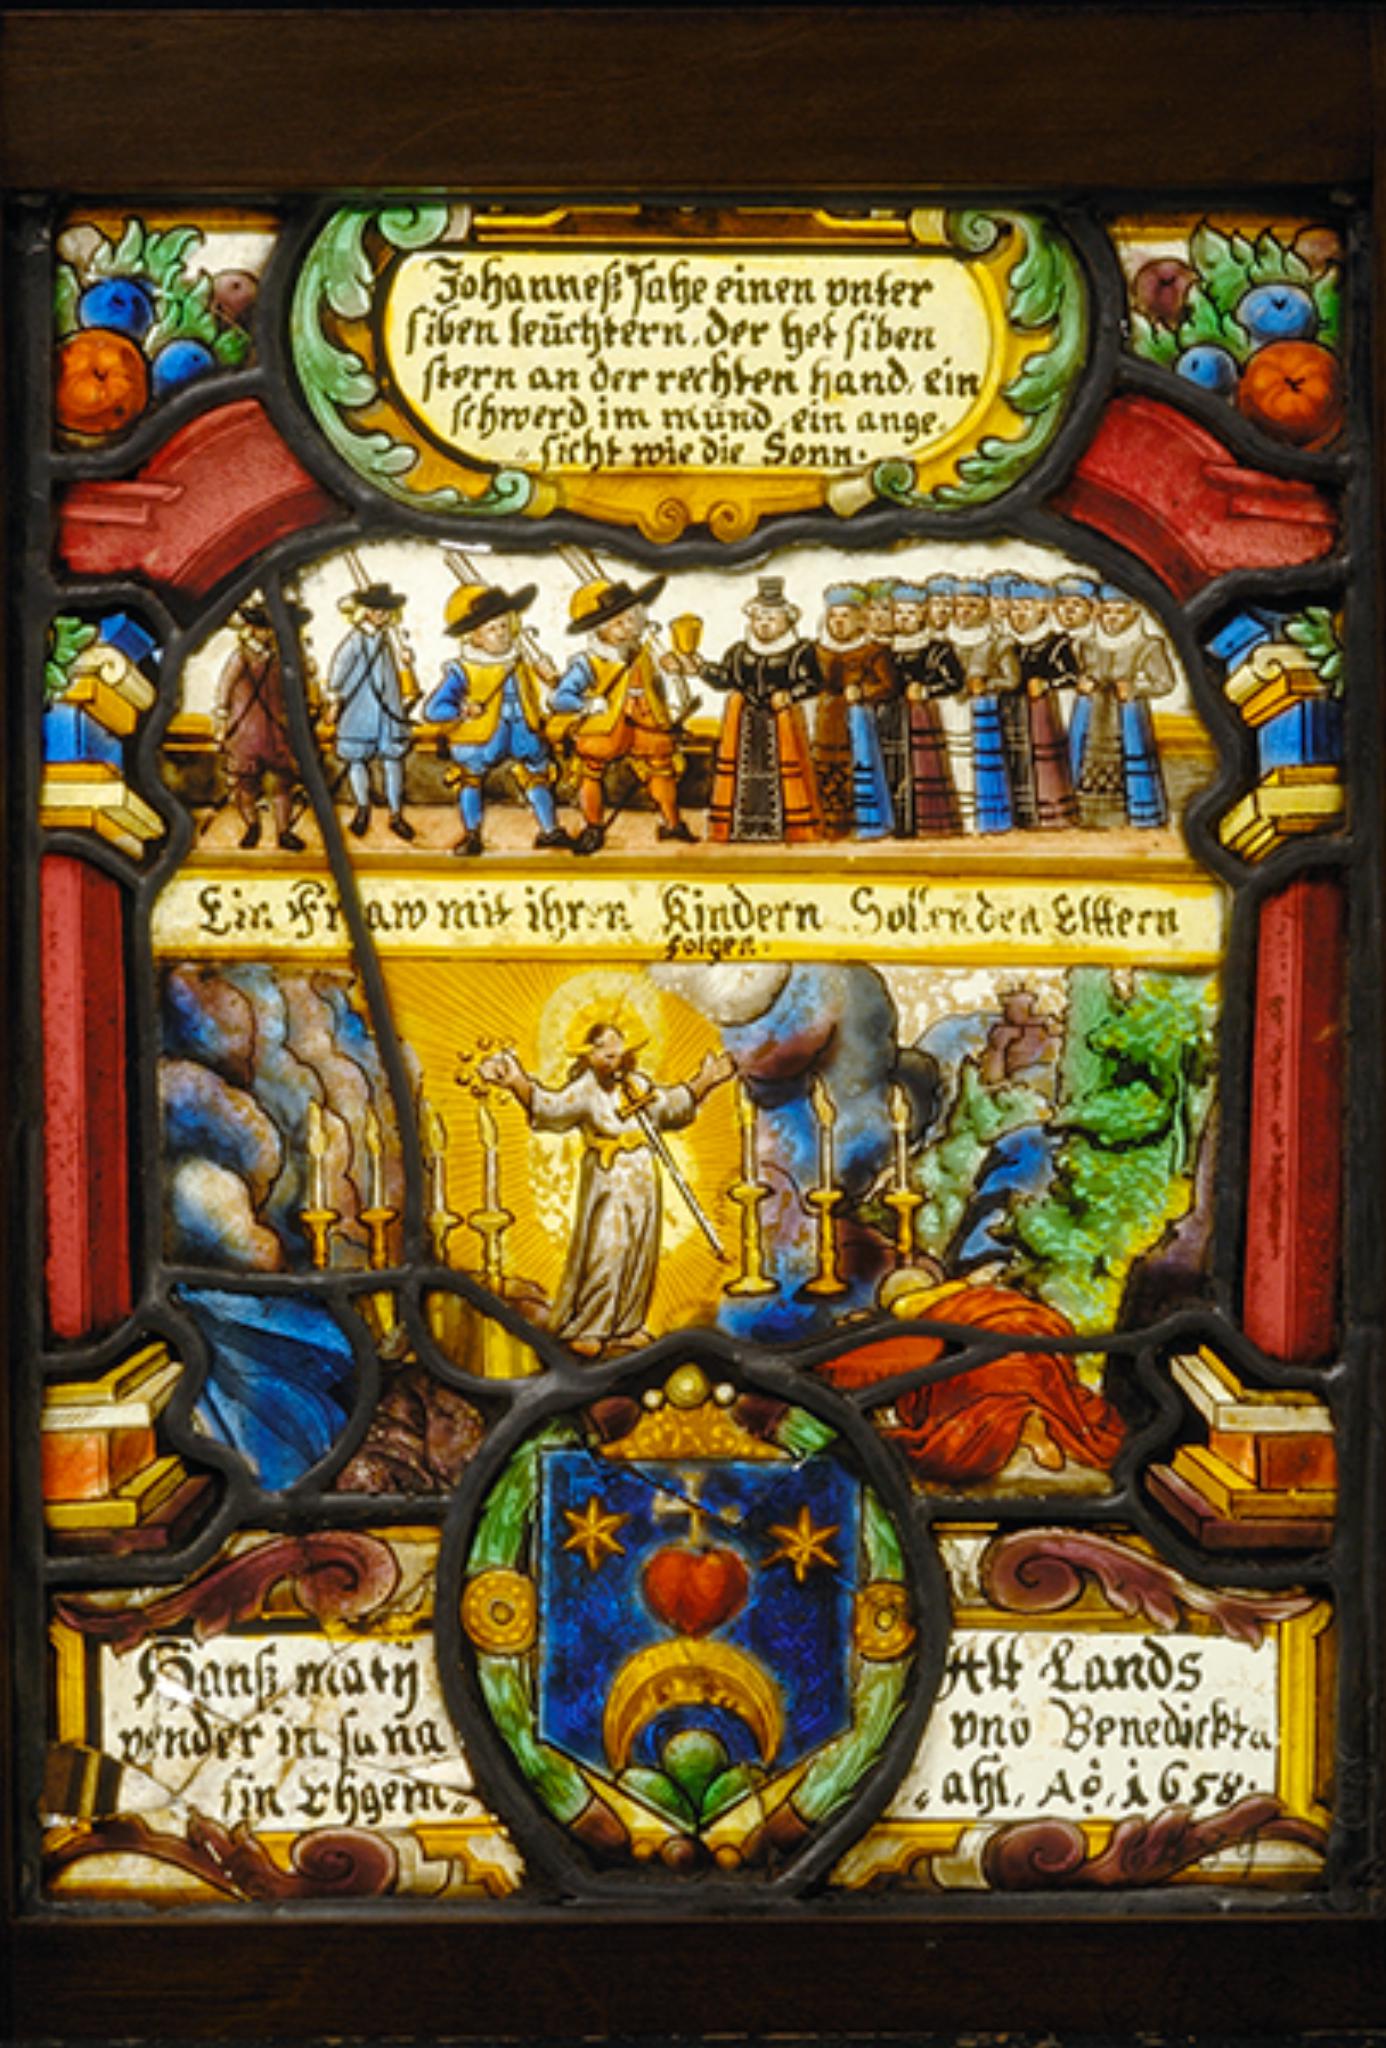 Johanneß sahe einen vnter
siben leüchtern, der het siben
stern an der rechten hand, ein
schwerd im mund, ein ange-
sicht wie die Sonn.
Ein Fraw mit ihren Kindern Sollen den Elltern
folgen.
Hanß maty Alt Lands
in vnd Benedickta
sin ahl, Aō, 1658.